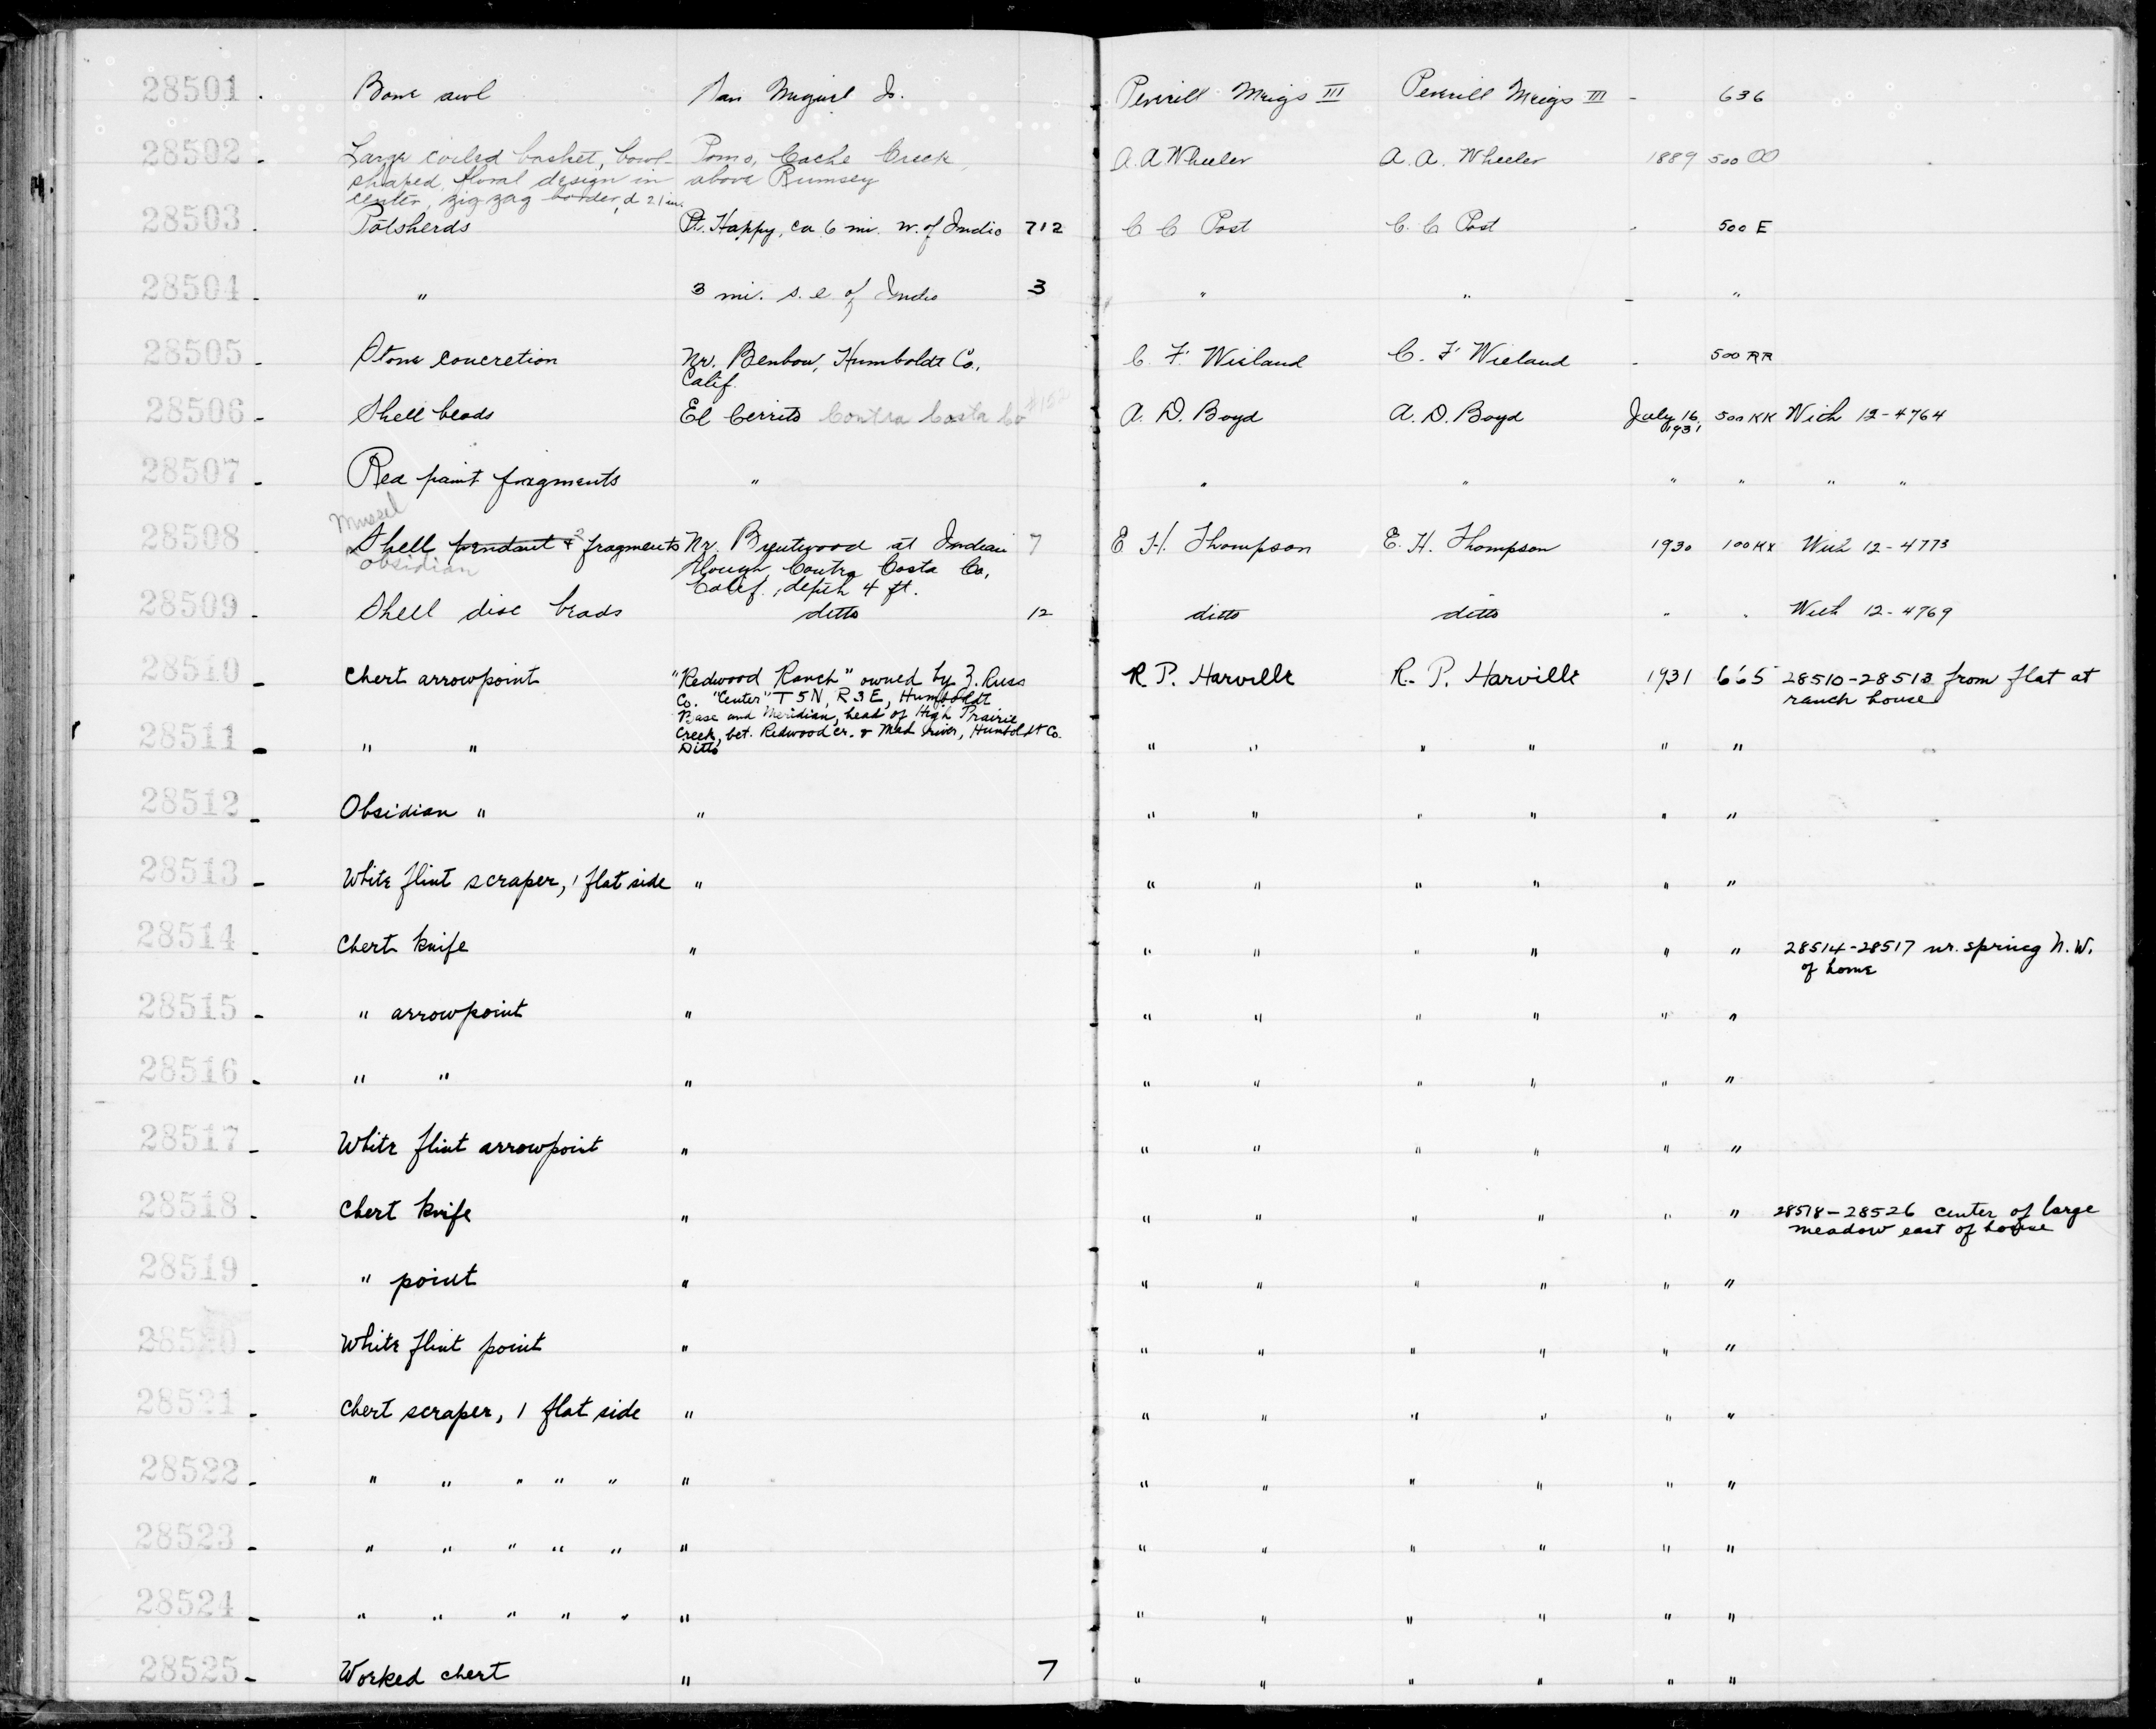 28501 . Bone awl San Miguel Is. Peverill Meigs III Peverill Meigs III - 636
28502 . Large coiled basket, bowl- Pomo, Cache Creek, A. A Wheeler A. A. Wheeler 1889 500 OO
shaped, floral design in above Rumsey
center, zigzag border, d 21 in.
28503 Potsherds Pt. Happy, ca 6 mi. w. of Indio 712 C C Post C. C Post - 500 E
28504 - " 3 mi. s. e of Indio 3 " " - "
28505 - Stone concretion Nr. Benbow, Humboldt Co. C. F. Wieland C. F. Wieland - 500 RR
Calif.
28506 - Shell beads El Cerrito Contra Costa Co A. D. Boyd A. D. Boyd July 16, 500 KK With 12-4764
1931
28507 - Red paint fragments " " " " " " "
Mussel
28508 - Shell pendant & fragments Nr. Brentwood at Indian 7 E H. Thompson E. H. Thompson 1930 100 KX With 12-4773
obsidian Slough, Contra Costa Co,
Calif., depth 4 ft.
28509 - Shell disc beads ditto 12 ditto ditto " " With 12-4769
28510 - Chert arrowpoint "Redwood Ranch" owned by Z. Russ R. P. Harville R. P. Harville 1931 665 28510-28513 from flat at
Co. "Center" T 5 N, R 3 E, Humboldt ranch house
Base and Meridian, head of High Prairie
Creek, bet. Redwood cr. & Mad river, Humboldt Co.
28511 - " " Ditto " " " " " "
28512 - Obsidian " " " " " " " "
28513 - White flint scraper, 1 flat side " " " " " " "
28514 - Chert knife " " " " " " " 28514-28517 nr. spring N. W.
of home
28515 - " arrowpoint " " " " " " "
28516 - " " " " " " " " "
28517 - White flint arrowpoint " " " " " " "
28518 - Chert knife " " " " " " " 28518-28526 center of large
meadow east of house
28519 - " point " " " " " " "
28520 - White flint point " " " " " " "
28521 - Chert scraper, 1 flat side " " " " " " "
28522 - " " " " " " " " " " " "
28523 - " " " " " " " " " " " "
28524 - " " " " " " " " " " " "
28525 - Worked chert " 7 " " " " " "